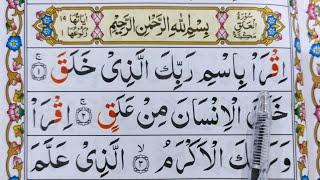 سُوْرَةُ الْعَلَقِ مَكِّيَّةٌ بِسْمِ اللهِ الرَّحْمٰنِ الرَّحِيْمِ اٰيَاتُهَا ١٩ رُكُوْعُهَا ١
اِقْرَاْ بِاسْمِ رَبِّكَ الَّذِىْ خَلَقَ ۚ ١
خَلَقَ الْاِنْسَانَ مِنْ عَلَقٍ ۚ ٢ اِقْرَاْ
وَرَبُّكَ الْاَكْرَمُ ۙ ٣ الَّذِىْ عَلَّمَ